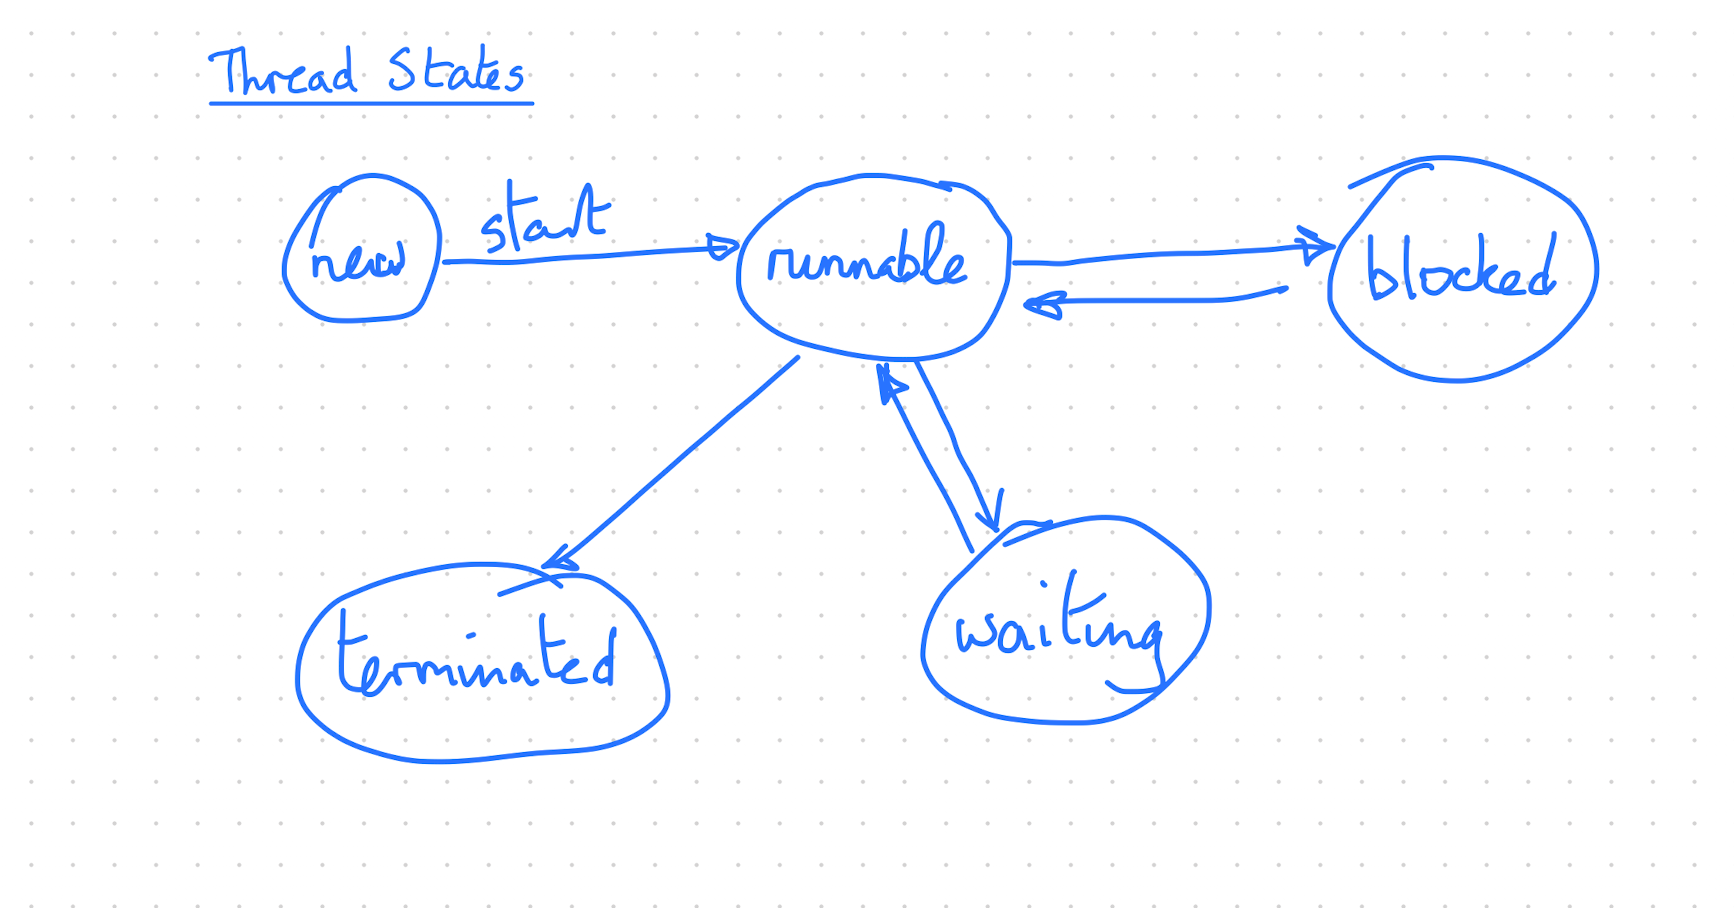 Thread States
new
start
runnable
blocked
terminated
waiting